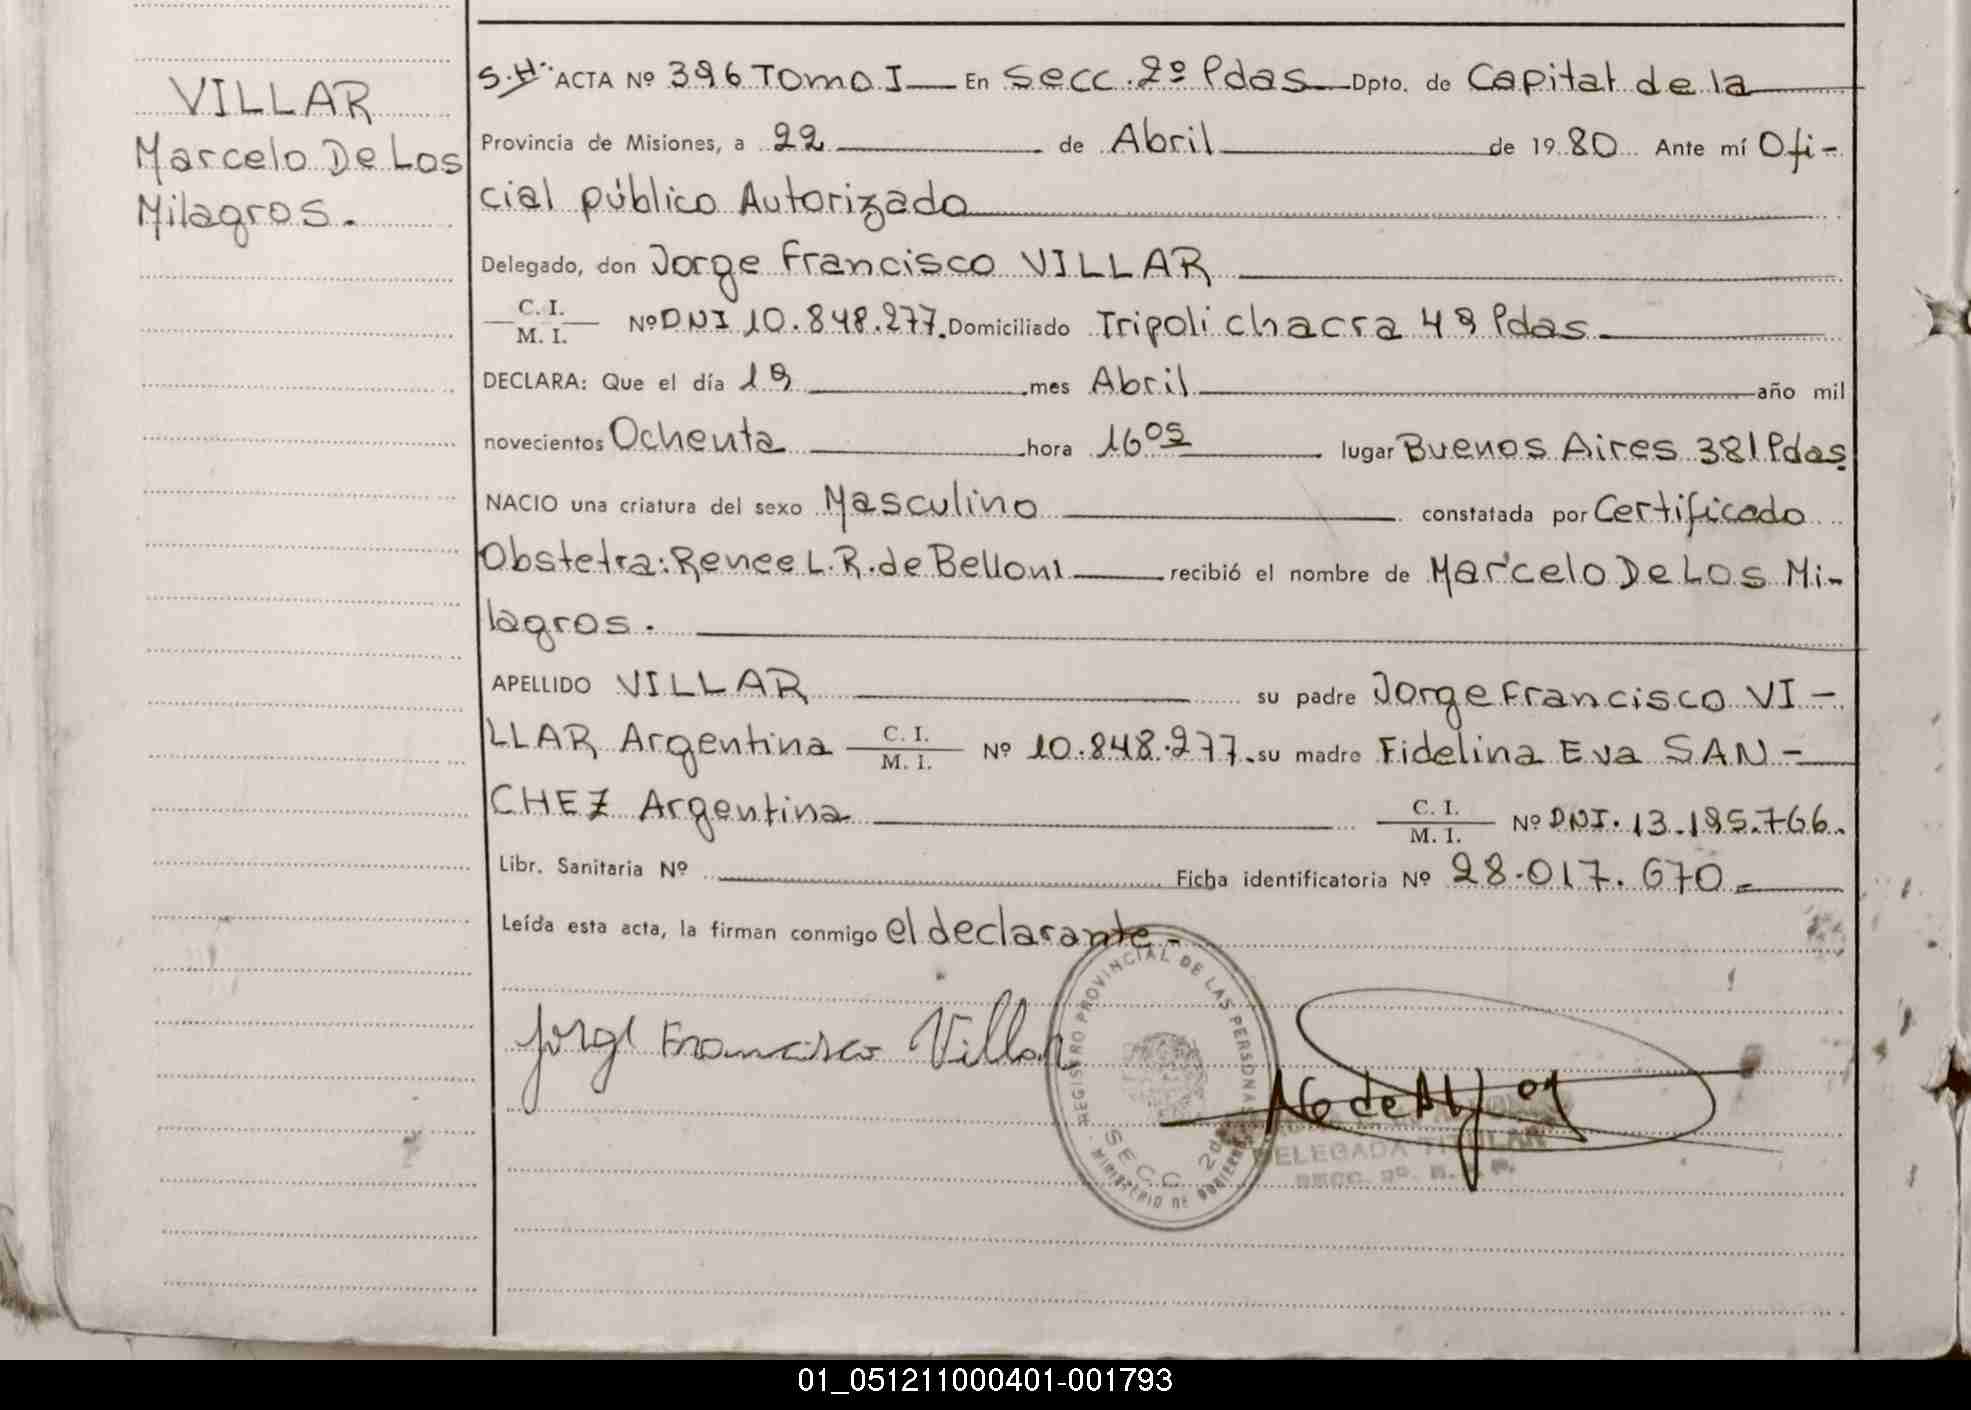 VILLAR
Marcelo De Los
Milagros.
S.H. ACTA Nº 396 Tomo I En Secc. 2º Pdas Dpto. de Capital de la
Provincia de Misiones, a 22 de Abril de 1980 Ante mí Ofi-
cial público Autorizado
Delegado, don Jorge Francisco VILLAR
C. I.
M. I. Nº DNI 10.848.277. Domiciliado Tripoli chacra 49 Pdas
DECLARA: Que el día 19 mes Abril año mil
novecientos Ochenta hora 16 05 lugar Buenos Aires 381 Pdas
NACIO una criatura del sexo Masculino constatada por Certificado
Obstetra: Renee L. R. de Belloni recibió el nombre de Marcelo De Los Mi-
lagros.
APELLIDO VILLAR su padre Jorge Francisco VI-
LLAR Argentina C. I. M. I. Nº 10.848.277. su madre Fidelina Eva SAN-
CHEZ Argentina C. I. M. I. Nº DNI. 13.195.766.
Libr. Sanitaria Nº Ficha identificatoria Nº 28.017.670.
Leída esta acta, la firman conmigo el declarante.-
Jorge Francisco Villar
REGISTRO PROVINCIAL DE LAS PERSONAS
SECC. 2da
MINISTERIO DE GOBIERNO
DELEGADA TITULAR
SECC. 2º.
01_051211000401-001793